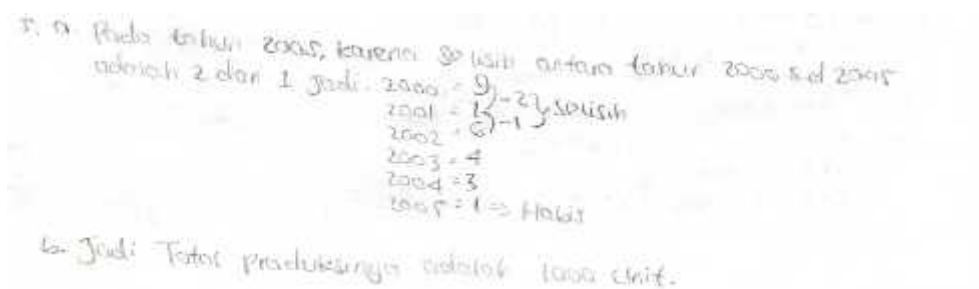 5. a. Pada tahun 2005, karena selisih antara tahun 2000 s.d 2005
adalah 2 dan 1 Jadi: 2000 = 9
2001 = 7 } -2 } selisih
2002 = 6 } -1
2003 = 4
2004 = 3
2005 = 1 => Habis
b. Jadi Total produksinya adalah 1000 Unit.